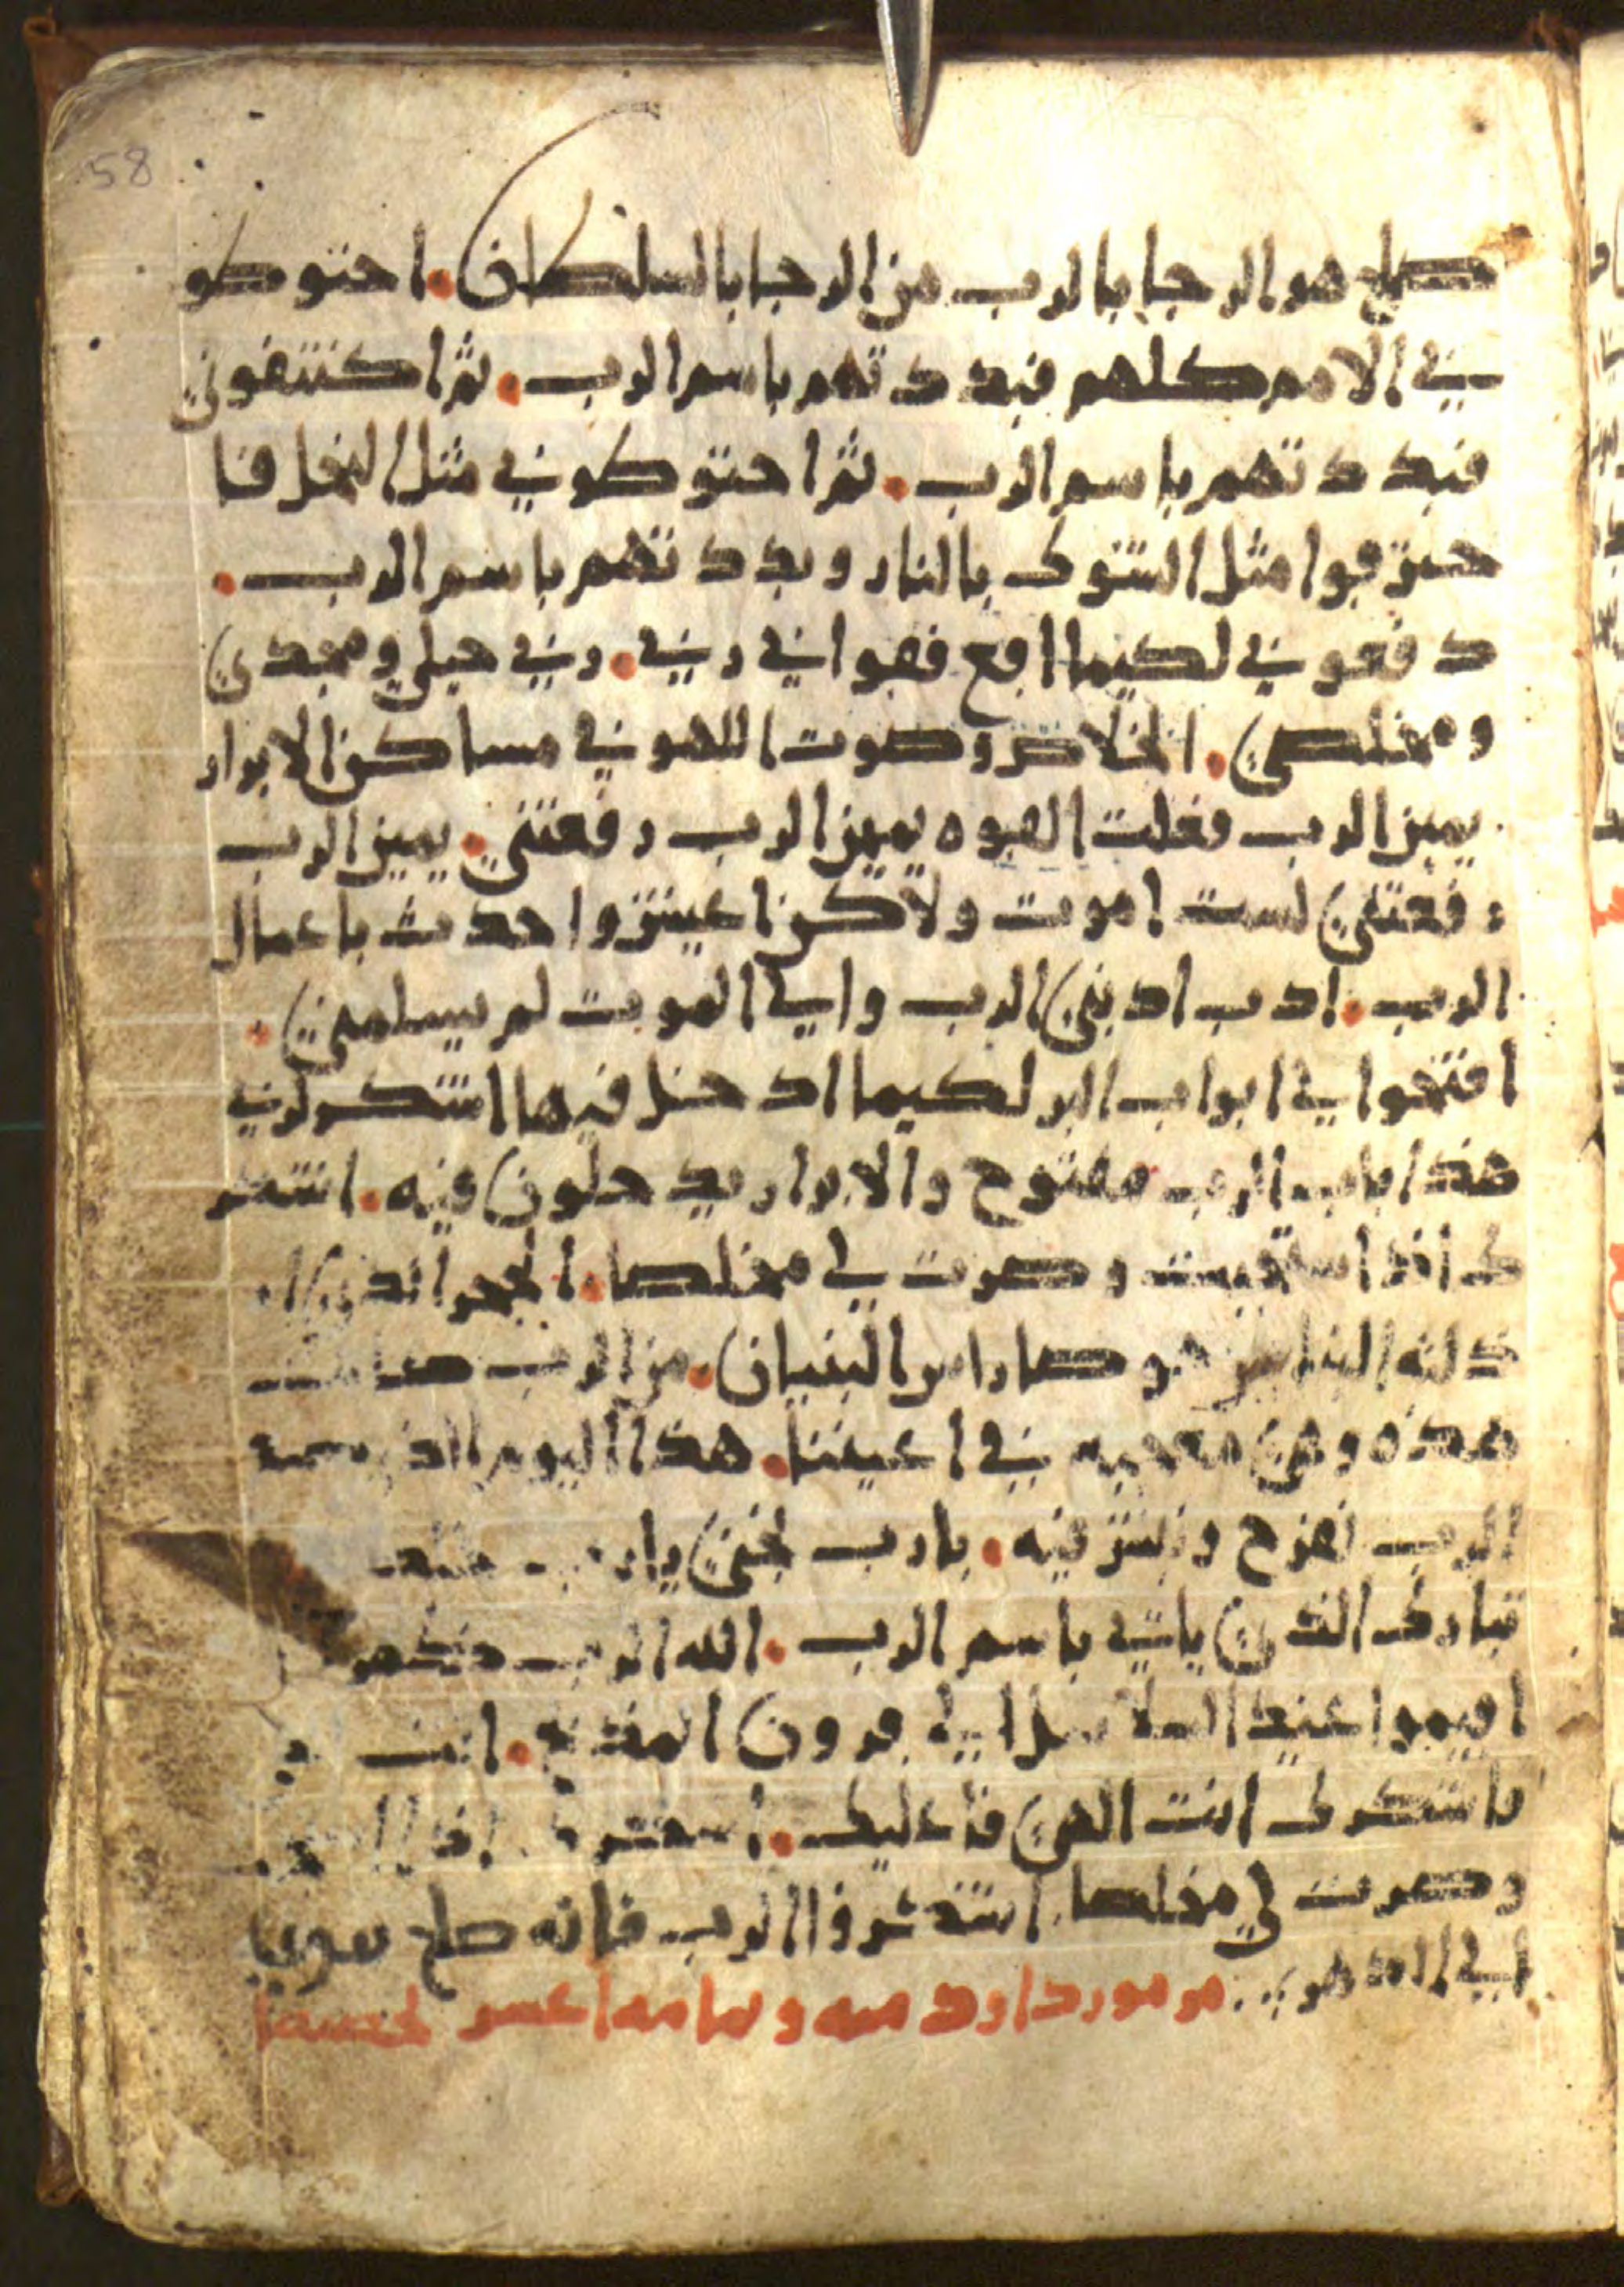 58
صلح هو الرجا بالرب من الرجا بالسلطان. احتوطو
ني الامم كلهم فبددتهم باسم الرب. ثم اكتنفوني
فبددتهم باسم الرب. ثم احتوطوني مثل النحل فا
حترقوا مثل الشوك بالنار وبددتهم باسم الرب.
دفعوني لكيما اقع فقواني ربي. ربي حيلي ومجدي
ومخلصي. الخلاص وصوت اللهو في مساكن الابرار
يمين الرب فعلت القوه يمين الرب رفعتني. يمين الرب
رفعتني لست اموت ولاكن اعيش واحدث باعمال
الرب. ادب ادبني الرب والي الموت لم يسلمني.
افتحوا لي ابواب البر لكيما ادخل فيها اشكر لربي
هذا باب الرب مفتوح والابرار يدخلون فيه. اشكر
ك اذ استجبت وصرت لي مخلصا. الحجر الذي
ذلته البنايين هو صار راس البنيان. من الرب صارت
هذه وهي معجبه في اعيننا. هذا اليوم الذي صنعه
الرب نفرح ونبش فيه. يا رب نجني يا رب
تبارك الذي ياتي باسم الرب. الله الرب
اقيموا عيد السلاسل الي قرون المذبح. انت
فاشكرك انت الهي فاعليك. اشكرك اذ
وصرت لي مخلصا اشكروا الرب فانه صلح
الي الدهر. مزمور داود ميه وثمانيه عشر